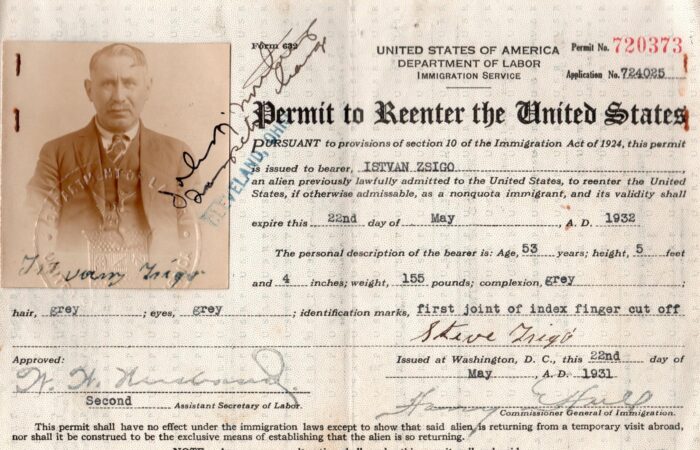 Form 632
UNITED STATES OF AMERICA
DEPARTMENT OF LABOR
IMMIGRATION SERVICE
Permit No. 720373
Application No. 724025
Permit to Reenter the United States
PURSUANT to provisions of section 10 of the Immigration Act of 1924, this permit
is issued to bearer, ISTVAN ZSIGO
an alien previously lawfully admitted to the United States, to reenter the United
States, if otherwise admissable, as a nonquota immigrant, and its validity shall
expire this 22nd day of May, A. D. 1932
The personal description of the bearer is: Age, 53 years; height, 5 feet
and 4 inches; weight, 155 pounds; complexion, grey;
hair, grey; eyes, grey; identification marks, first joint of index finger cut off
Steve Zsigo
CLEVELAND, OHIO
Istvany Zsigo
Approved:
Second Assistant Secretary of Labor.
Issued at Washington, D. C., this 22nd day of
May, A. D. 1931.
Commissioner General of Immigration.
This permit shall have no effect under the immigration laws except to show that said alien is returning from a temporary visit abroad,
nor shall it be construed to be the exclusive means of establishing that the alien is so returning.